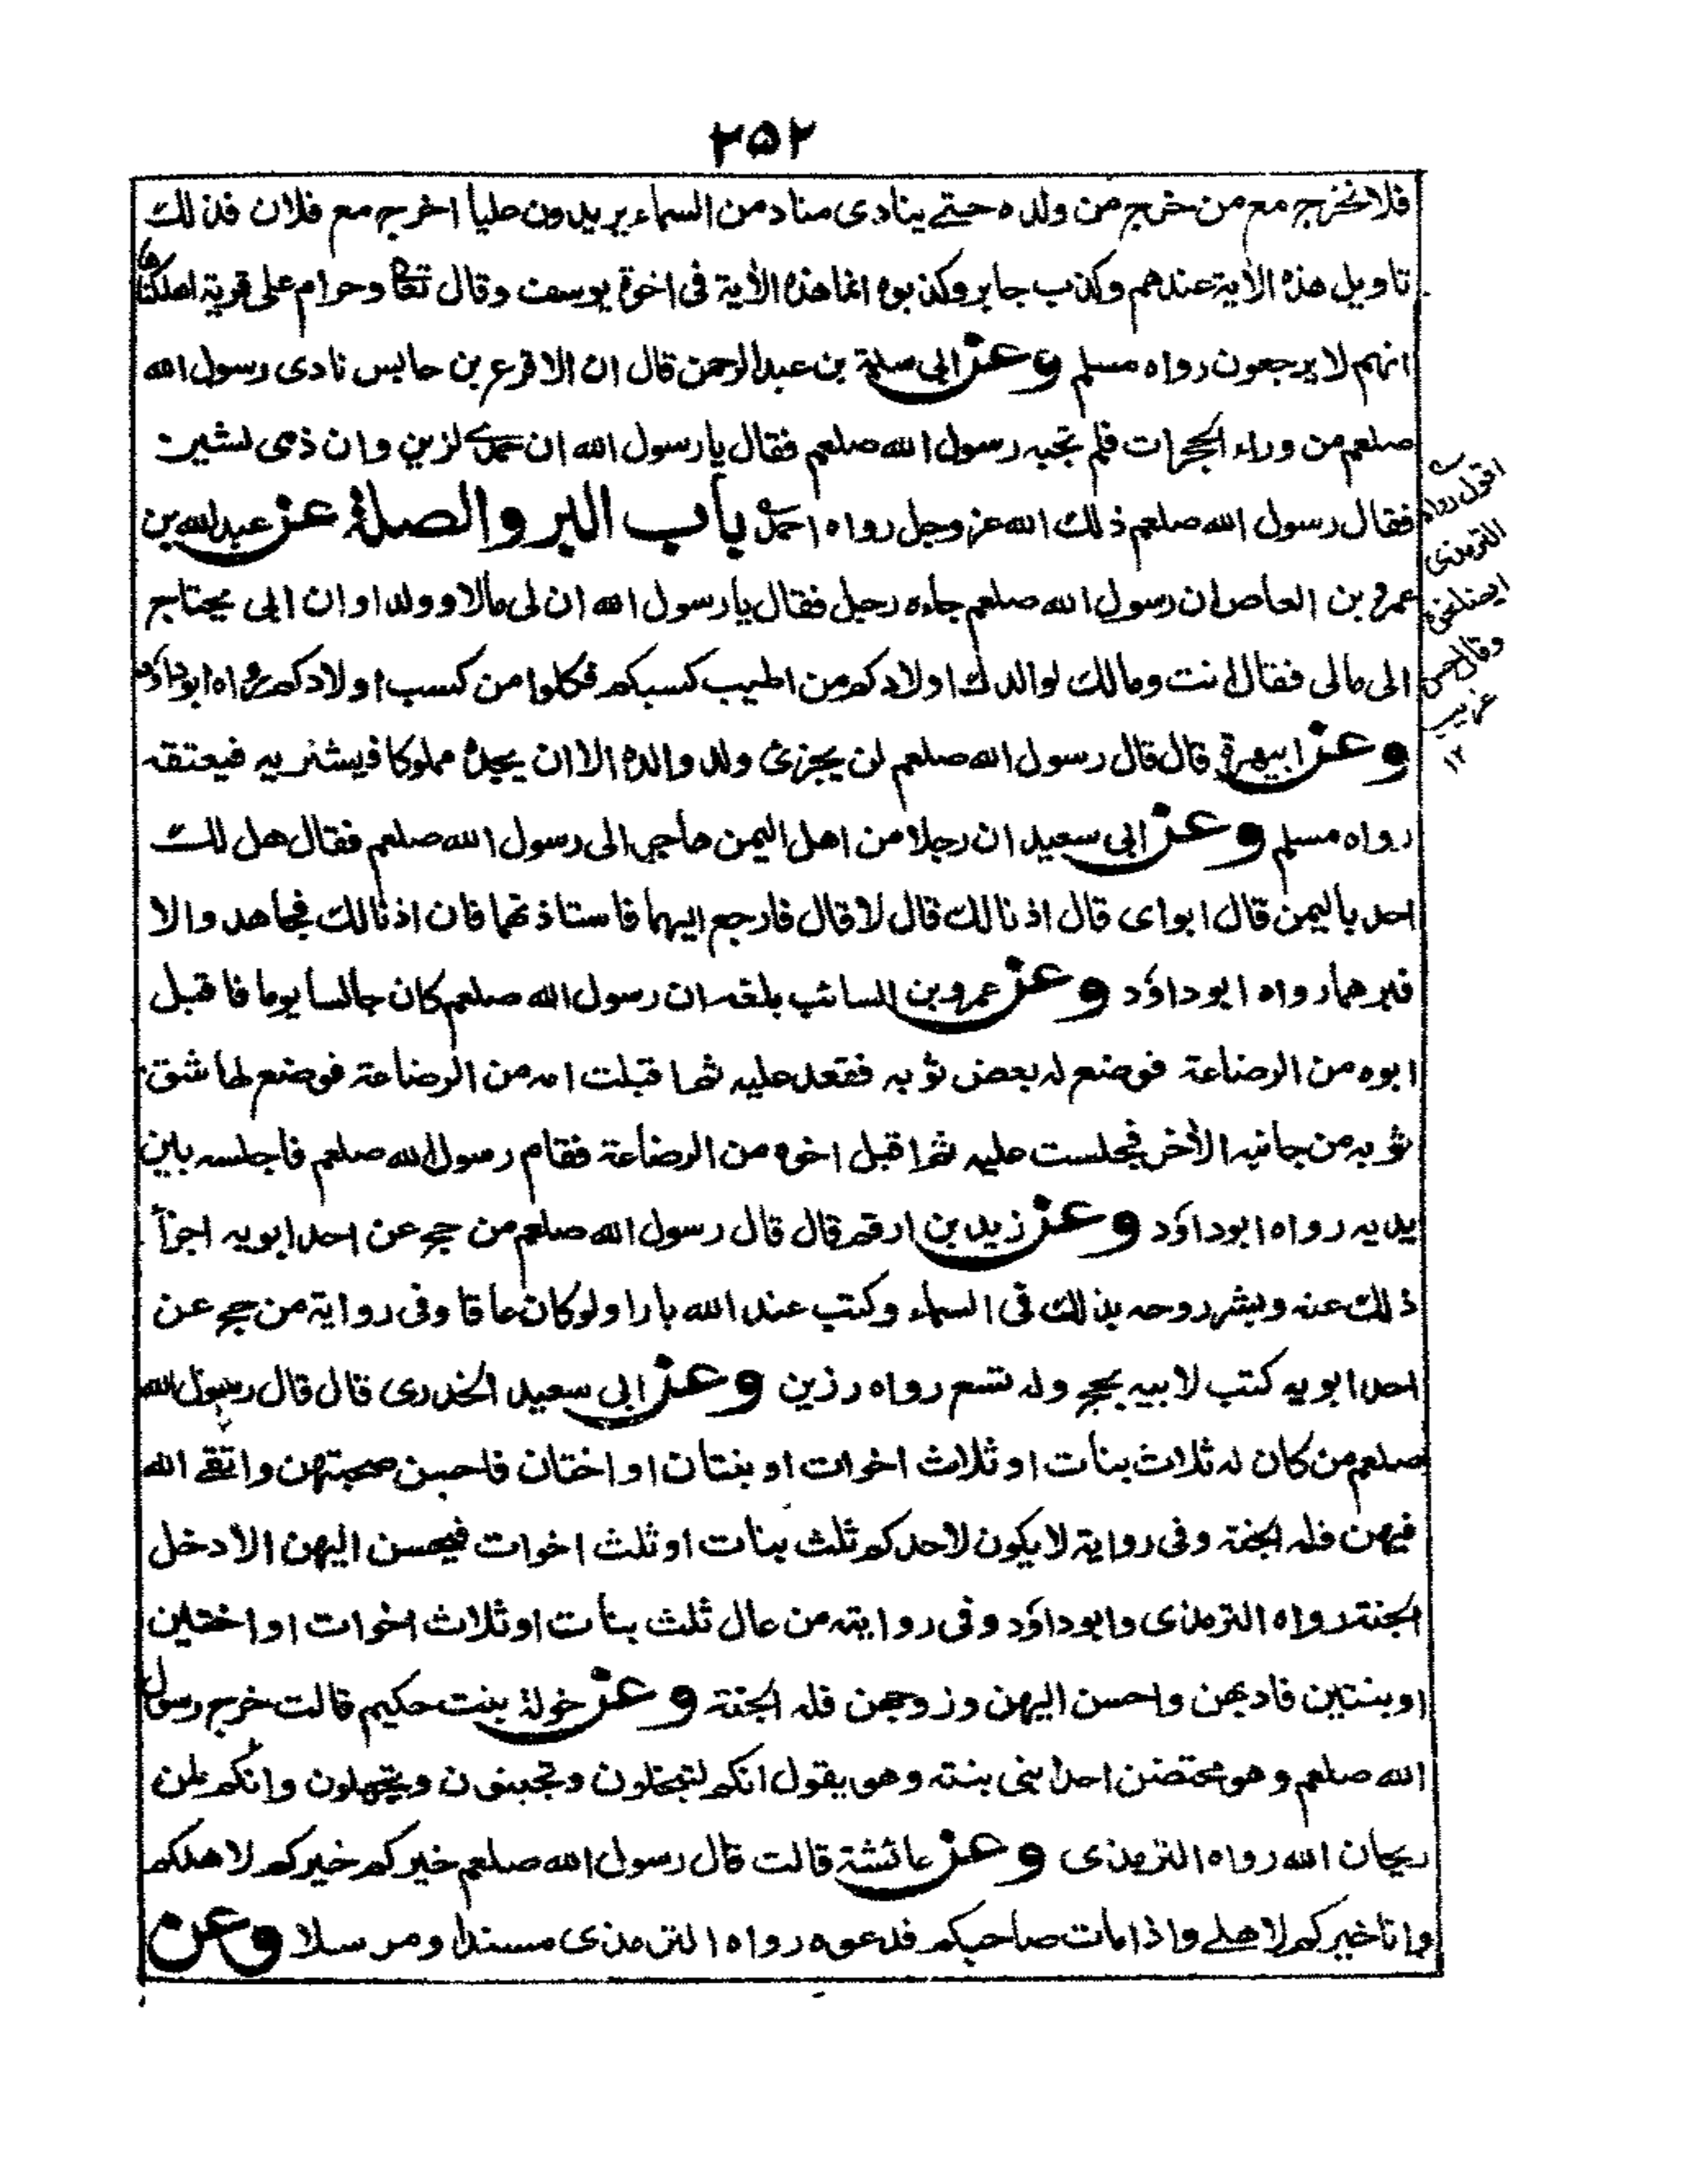 ٢٥٢
فلا نخرج مع من خرج من ولده حتے ینادی مناد من السماء یریدون علیا اخرج مع فلان فذلك
تاویل هذه الاٰیة عندهم وكذب جابر وكذبوه انما هذه الاٰیة فی اخوة یوسف وقال تعا وحرام علی قریة اهلكناها
انهم لا یرجعون رواه مسلم وعن ابی سلمة بن عبد الرحمن قال ان الاقرع بن حابس نادی رسول الله
صلعم من وراء الحجرات فلم تجبه رسول الله صلعم فقال یا رسول الله ان حمدی لزین وان ذمی لشین
فقال رسول الله صلعم ذلك الله عز وجل رواه احمد باب البر والصلة عن عبد الله بن
عمرو بن العاص ان رسول الله صلعم جاءه رجل فقال یا رسول الله ان لی مالا وولدا وان ابی یحتاج
الی مالی فقال انت ومالك لوالدك اولادكم من اطیب كسبكم فكلوا من كسب اولادكم رواه ابوداؤد
وعن ابیهرة قال قال رسول الله صلعم لن یجزئ ولد والده الا ان یجده مملوكا فیشتریه فیعتقه
رواه مسلم وعن ابی سعید ان رجلا من اهل الیمن هاجر الی رسول الله صلعم فقال هل لك
احد بالیمن قال ابوای قال اذنا لك قال لا قال فارجع الیهما فاستاذنهما فان اذنا لك فجاهد والا
فبرهما رواه ابوداؤد وعن عمرو بن السائب بلغه ان رسول الله صلعم كان جالسا یوما فاقبل
ابوه من الرضاعة فوضع له بعض ثوبه فقعد علیه ثم اقبلت امه من الرضاعة فوضع لها شق
ثوبه من جانبه الاٰخر فجلست علیه ثم اقبل اخوه من الرضاعة فقام رسول الله صلعم فاجلسه بین
یدیه رواه ابوداؤد وعن زید بن ارقم قال قال رسول الله صلعم من حج عن احد ابویه اجزأ
ذلك عنه وبشر روحه بذلك فی السماء وكتب عند الله بارا ولو كان عاقا وفی روایة من حج عن
احد ابویه كتب لابیه بحج وله تسع رواه رزین وعن ابی سعید الخدری قال قال رسول الله
صلعم من كان له ثلاث بنات او ثلاث اخوات او بنتان او اختان فاحسن صحبتهن واتقے الله
فیهن فله الجنة وفی روایة لا یكون لاحدكم ثلث بنات او ثلث اخوات فیحسن الیهن الا دخل
الجنة رواه الترمذی وابوداؤد وفی روایته من عال ثلث بنات او ثلاث اخوات او اختین
او بنتین فادبهن واحسن الیهن وزوجهن فله الجنة وعن خولة بنت حكیم قالت خرج رسول
الله صلعم وهو محتضن احد ابنی بنته وهو یقول انكم لتبخلون وتجبنون وتجهلون وانكم لمن
ریحان الله رواه الترمذی وعن عائشة قالت قال رسول الله صلعم خیركم خیركم لاهلكم
وانا خیركم لاهلے واذا مات صاحبكم فدعوه رواه الترمذی مسندا ومرسلا وعن
اقول رواه
الترمذی
ایضا
وقال حسن
غریب
١٢